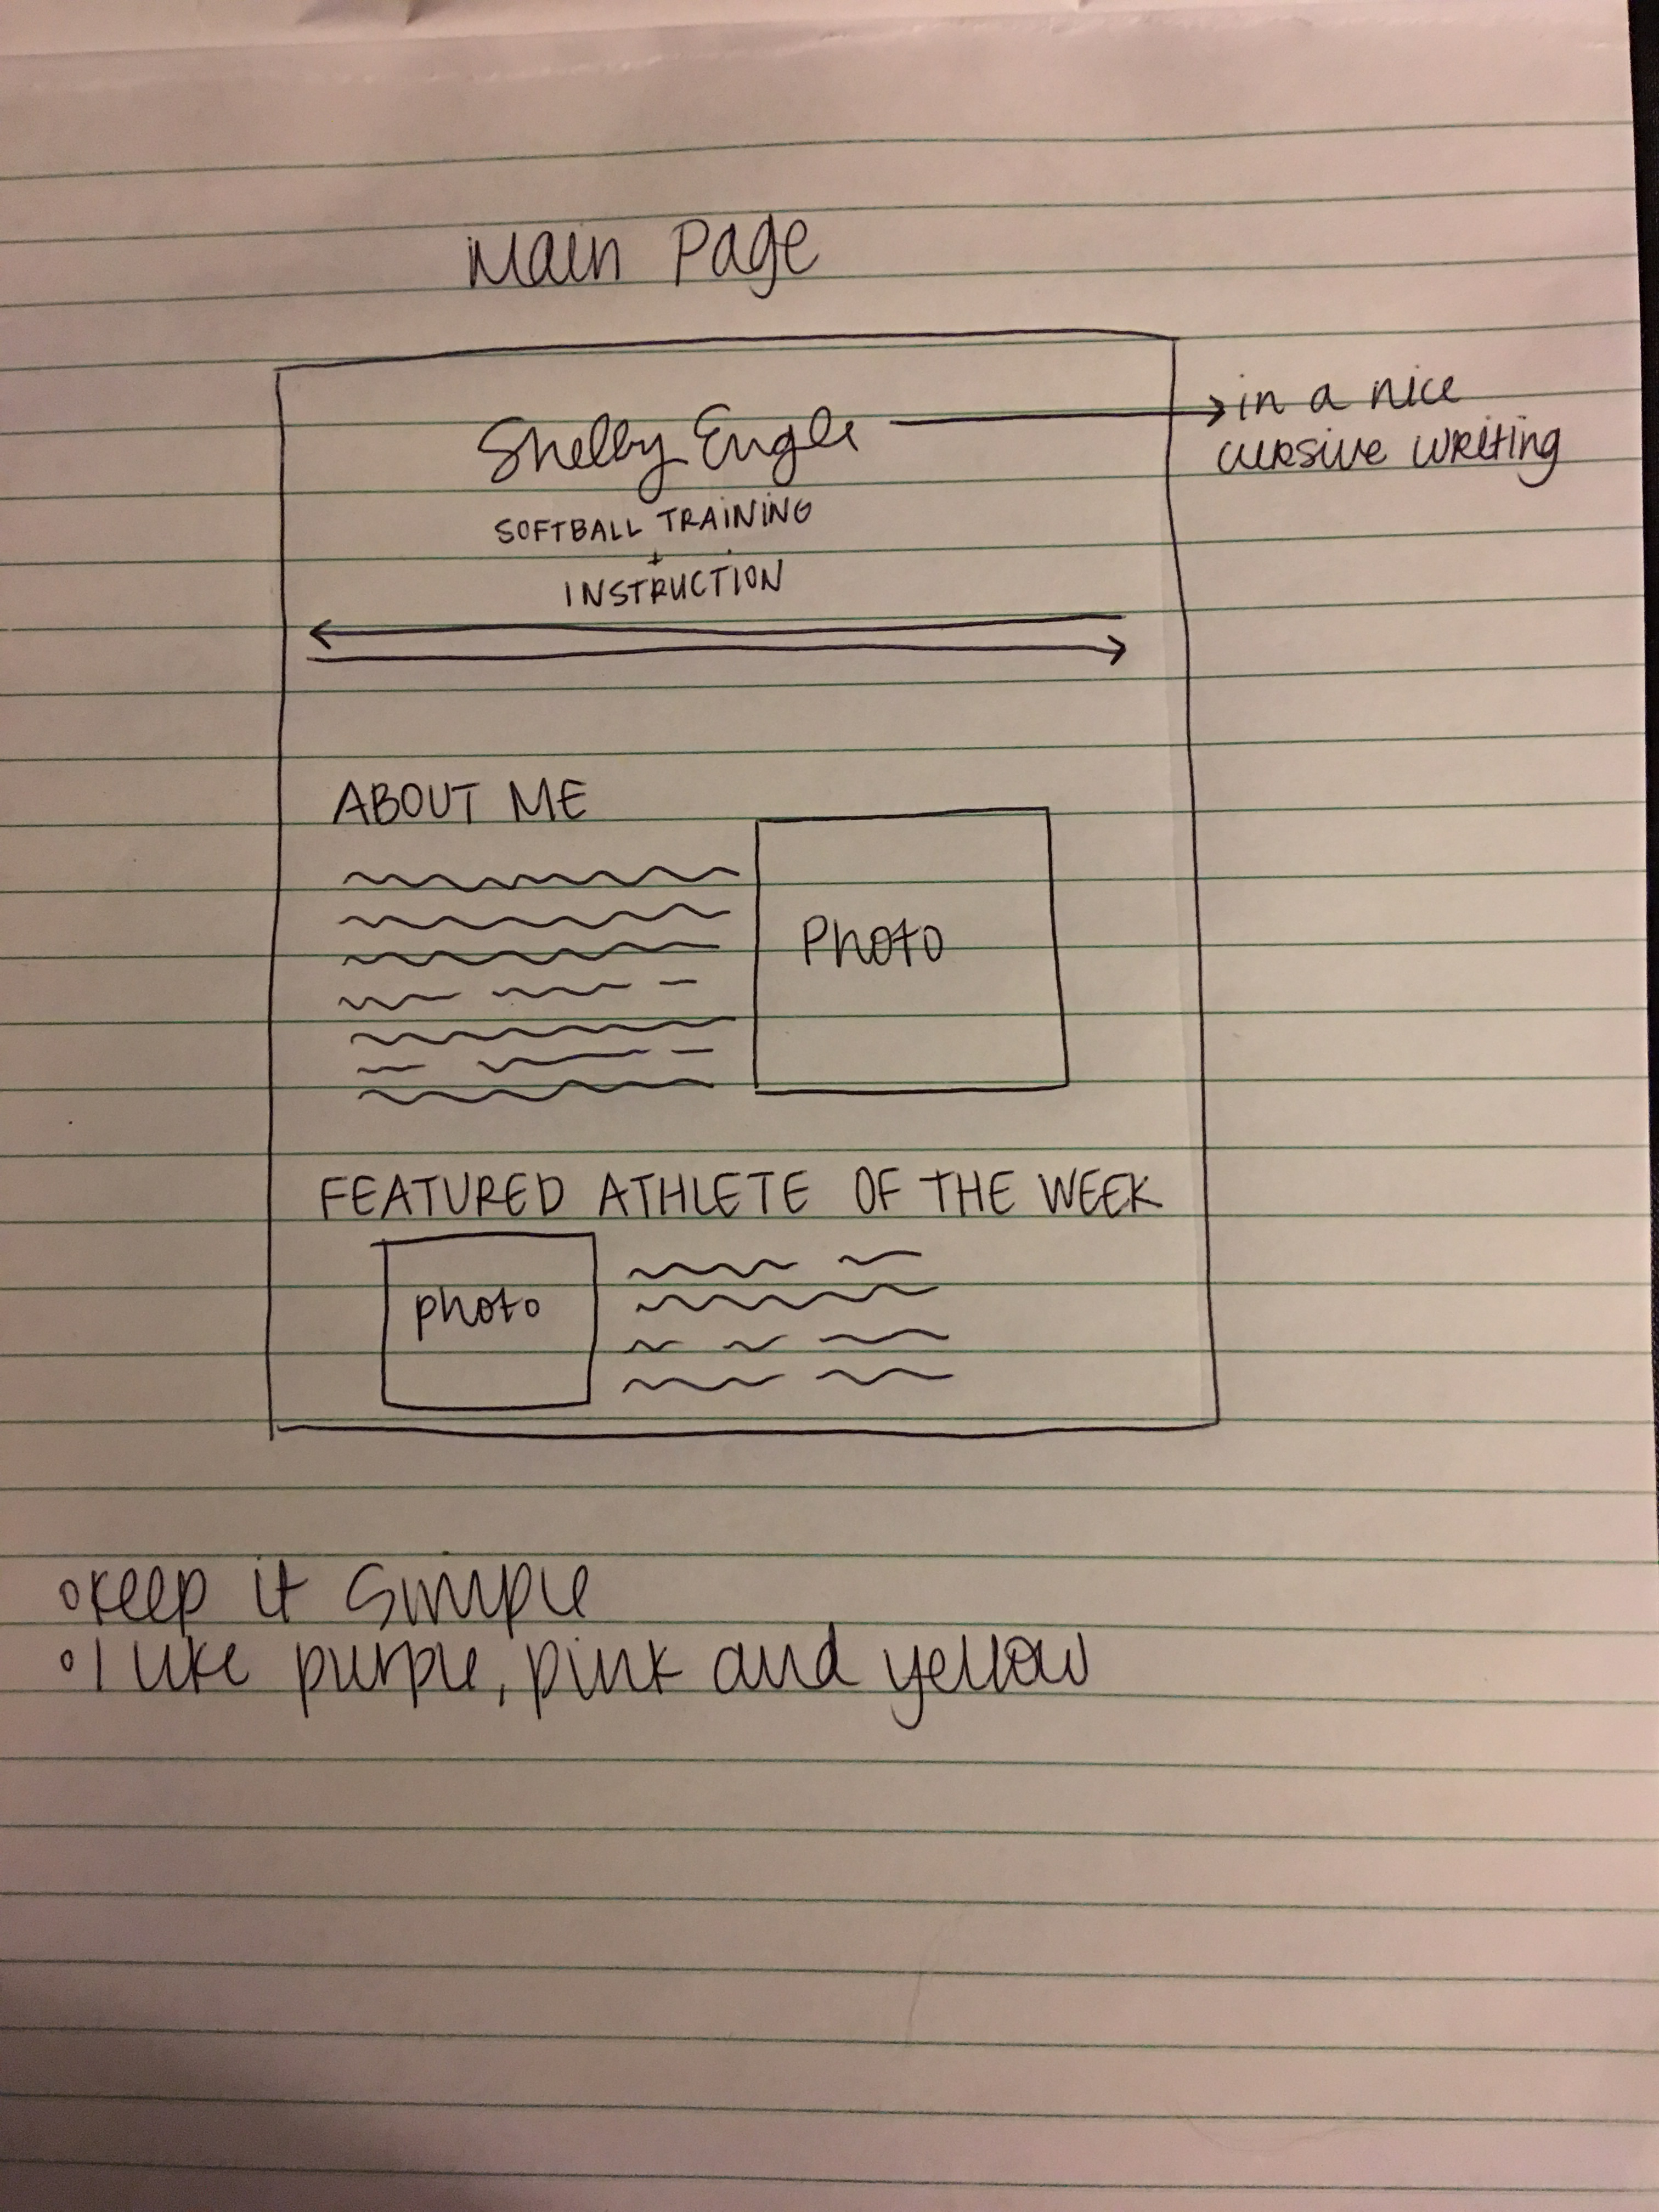 Main Page
Shelby Engle
in a nice
cursive writing
SOFTBALL TRAINING
+
INSTRUCTION
ABOUT ME
Photo
FEATURED ATHLETE OF THE WEEK
photo
keep it simple
I like purple, pink and yellow